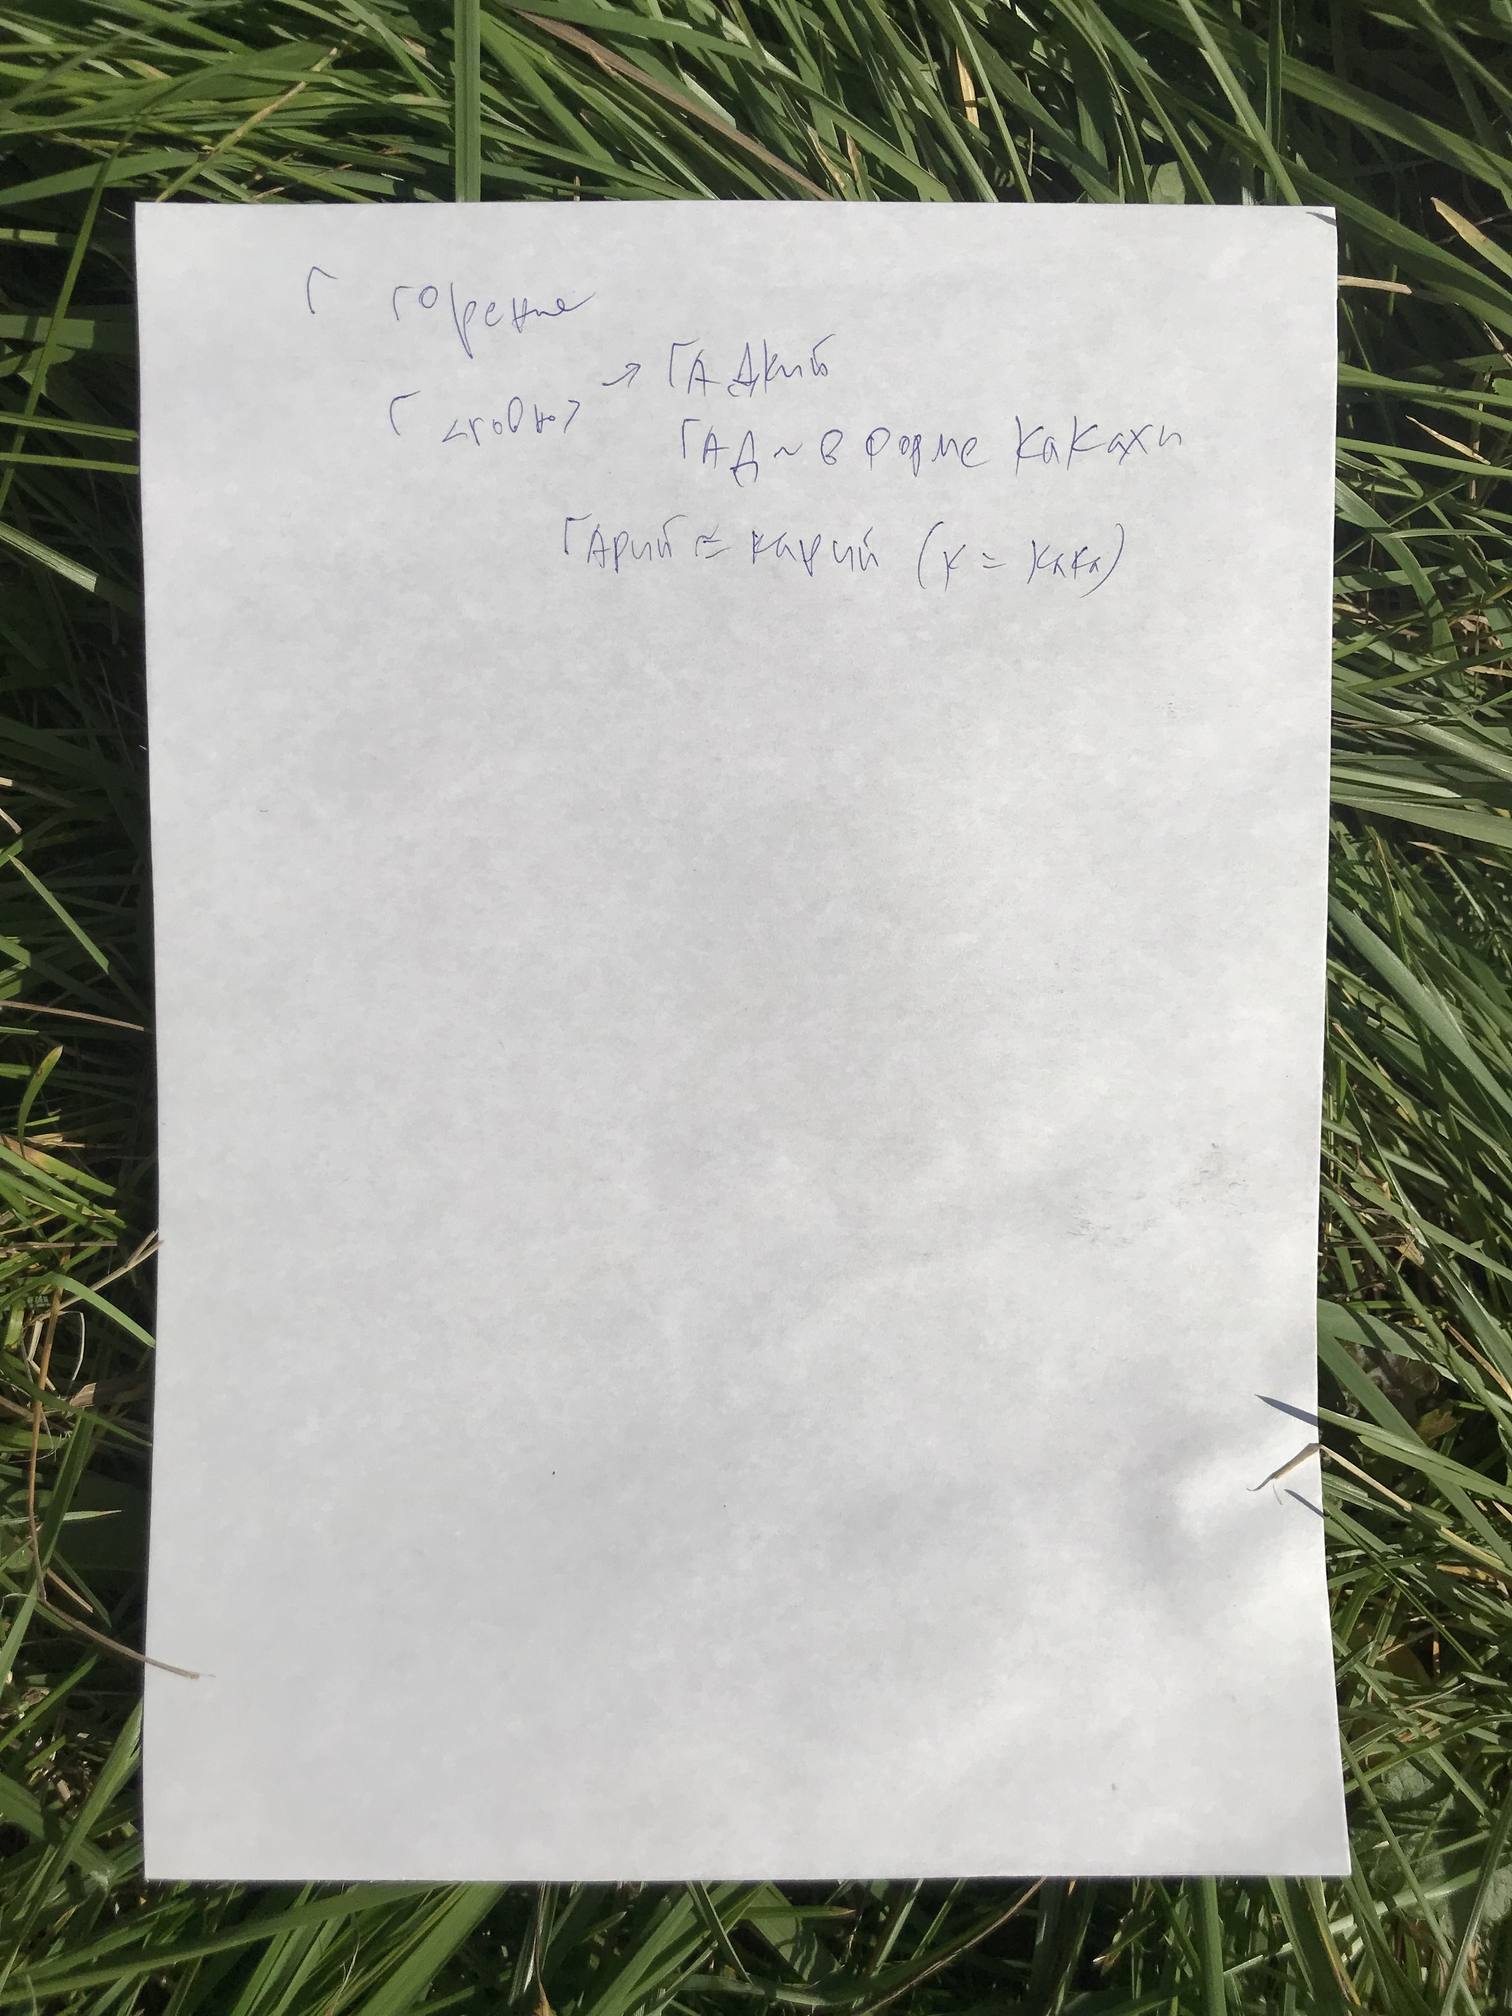 Г горение
→ ГАДкий
Г <говно>
ГАД ~ в форме какахи
ГАрий ≈ карий (к = кака)